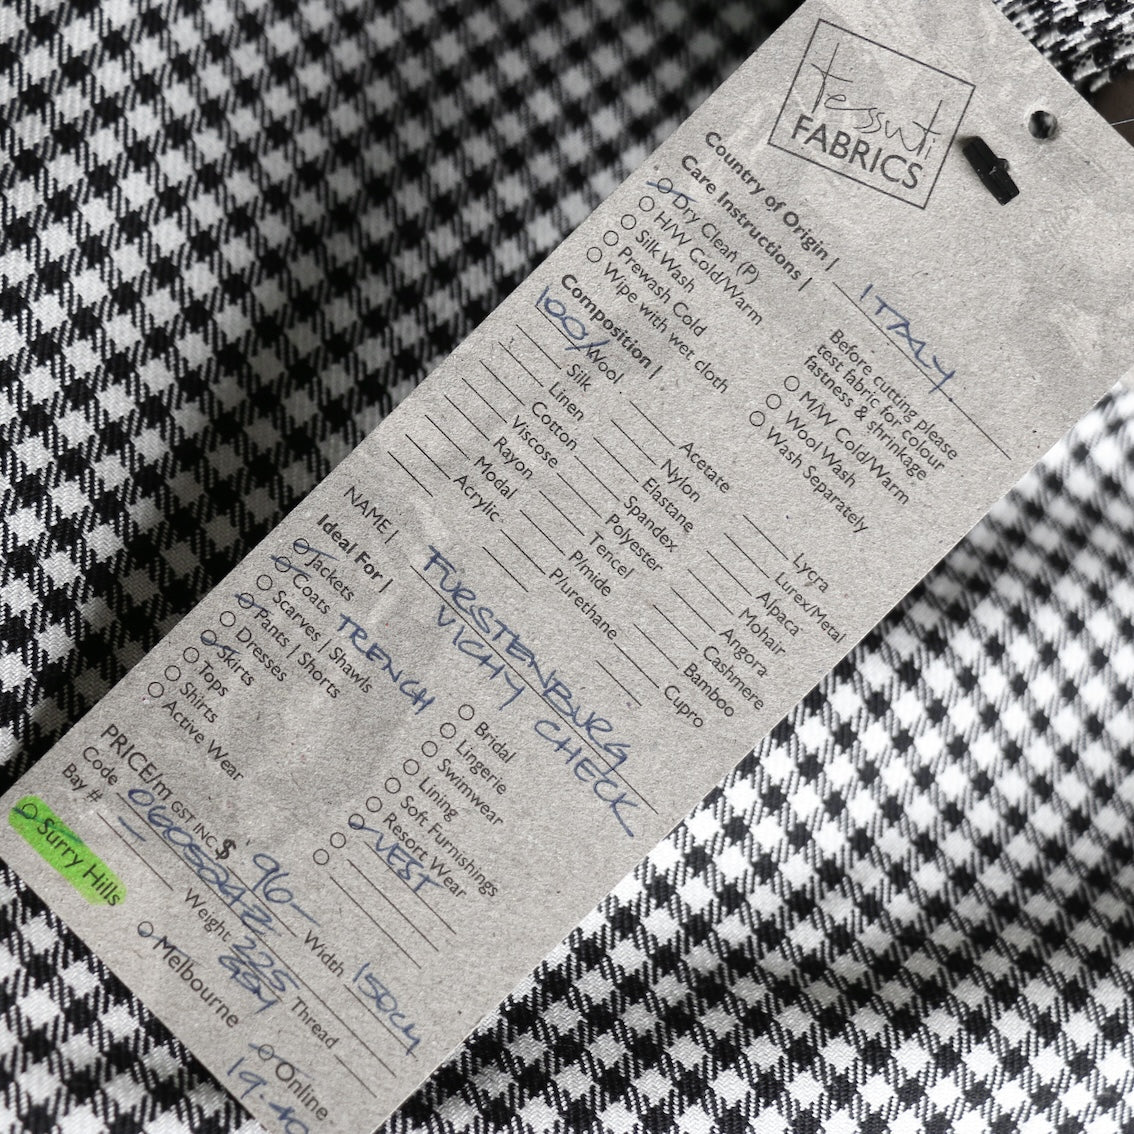 tessuti
FABRICS
Country of Origin | ITALY
Care Instructions |
Dry Clean (P)
H/W Cold/Warm
Silk Wash
Prewash Cold
Wipe with wet cloth
Before cutting please
test fabric for colour
fastness & shrinkage
M/W Cold/Warm
Wool Wash
Wash Separately
Composition |
100% Wool
Silk
Linen
Cotton
Viscose
Rayon
Modal
Acrylic
Acetate
Nylon
Elastane
Spandex
Polyester
Tencel
P/mide
P/urethane
Lycra
Lurex/Metal
Alpaca
Mohair
Angora
Cashmere
Bamboo
Cupro
NAME | FURSTENBURG
VICHY CHECK
Ideal For |
Jackets
Coats TRENCH
Scarves | Shawls
Pants | Shorts
Dresses
Skirts
Tops
Shirts
Active Wear
Bridal
Lingerie
Swimwear
Lining
Soft Furnishings
Resort Wear
VEST
PRICE/mt GST INC $ 96— Width 150cm
Code 0605042 Weight 225 GSM Thread
Bay # —
Surry Hills
Melbourne
Online
19.40